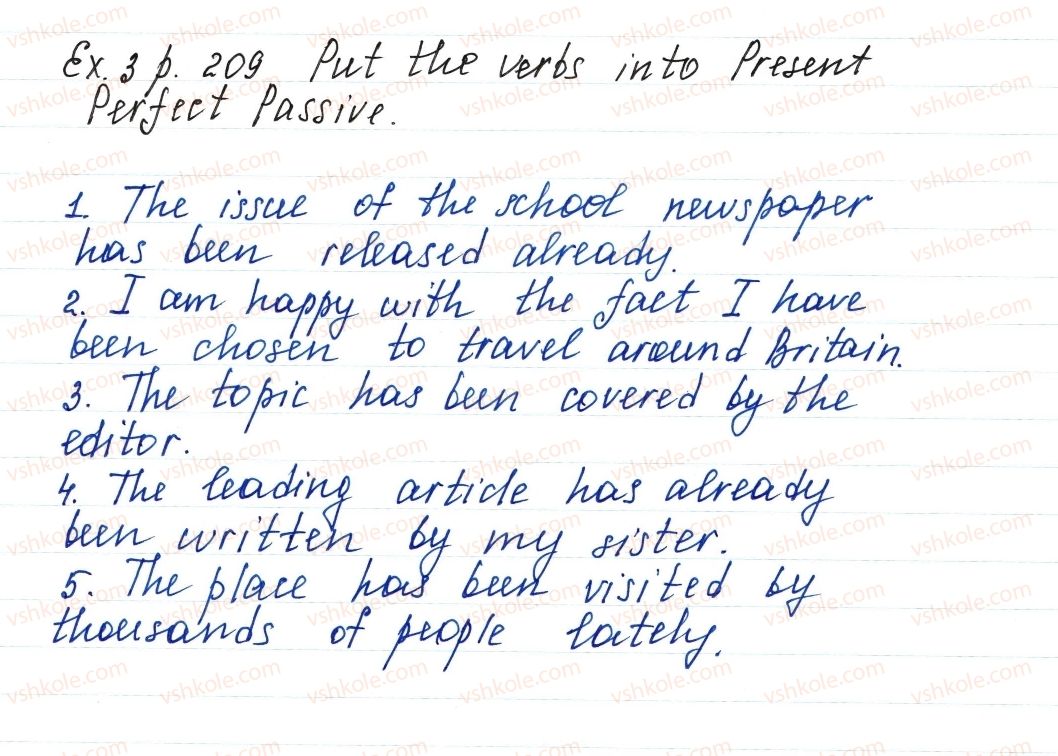 Ex. 3 p. 209 Put the verbs into Present
Perfect Passive.
1. The issue of the school newspaper
has been released already.
2. I am happy with the fact I have
been chosen to travel around Britain.
3. The topic has been covered by the
editor.
4. The leading article has already
been written by my sister.
5. The place has been visited by
thousands of people lately.